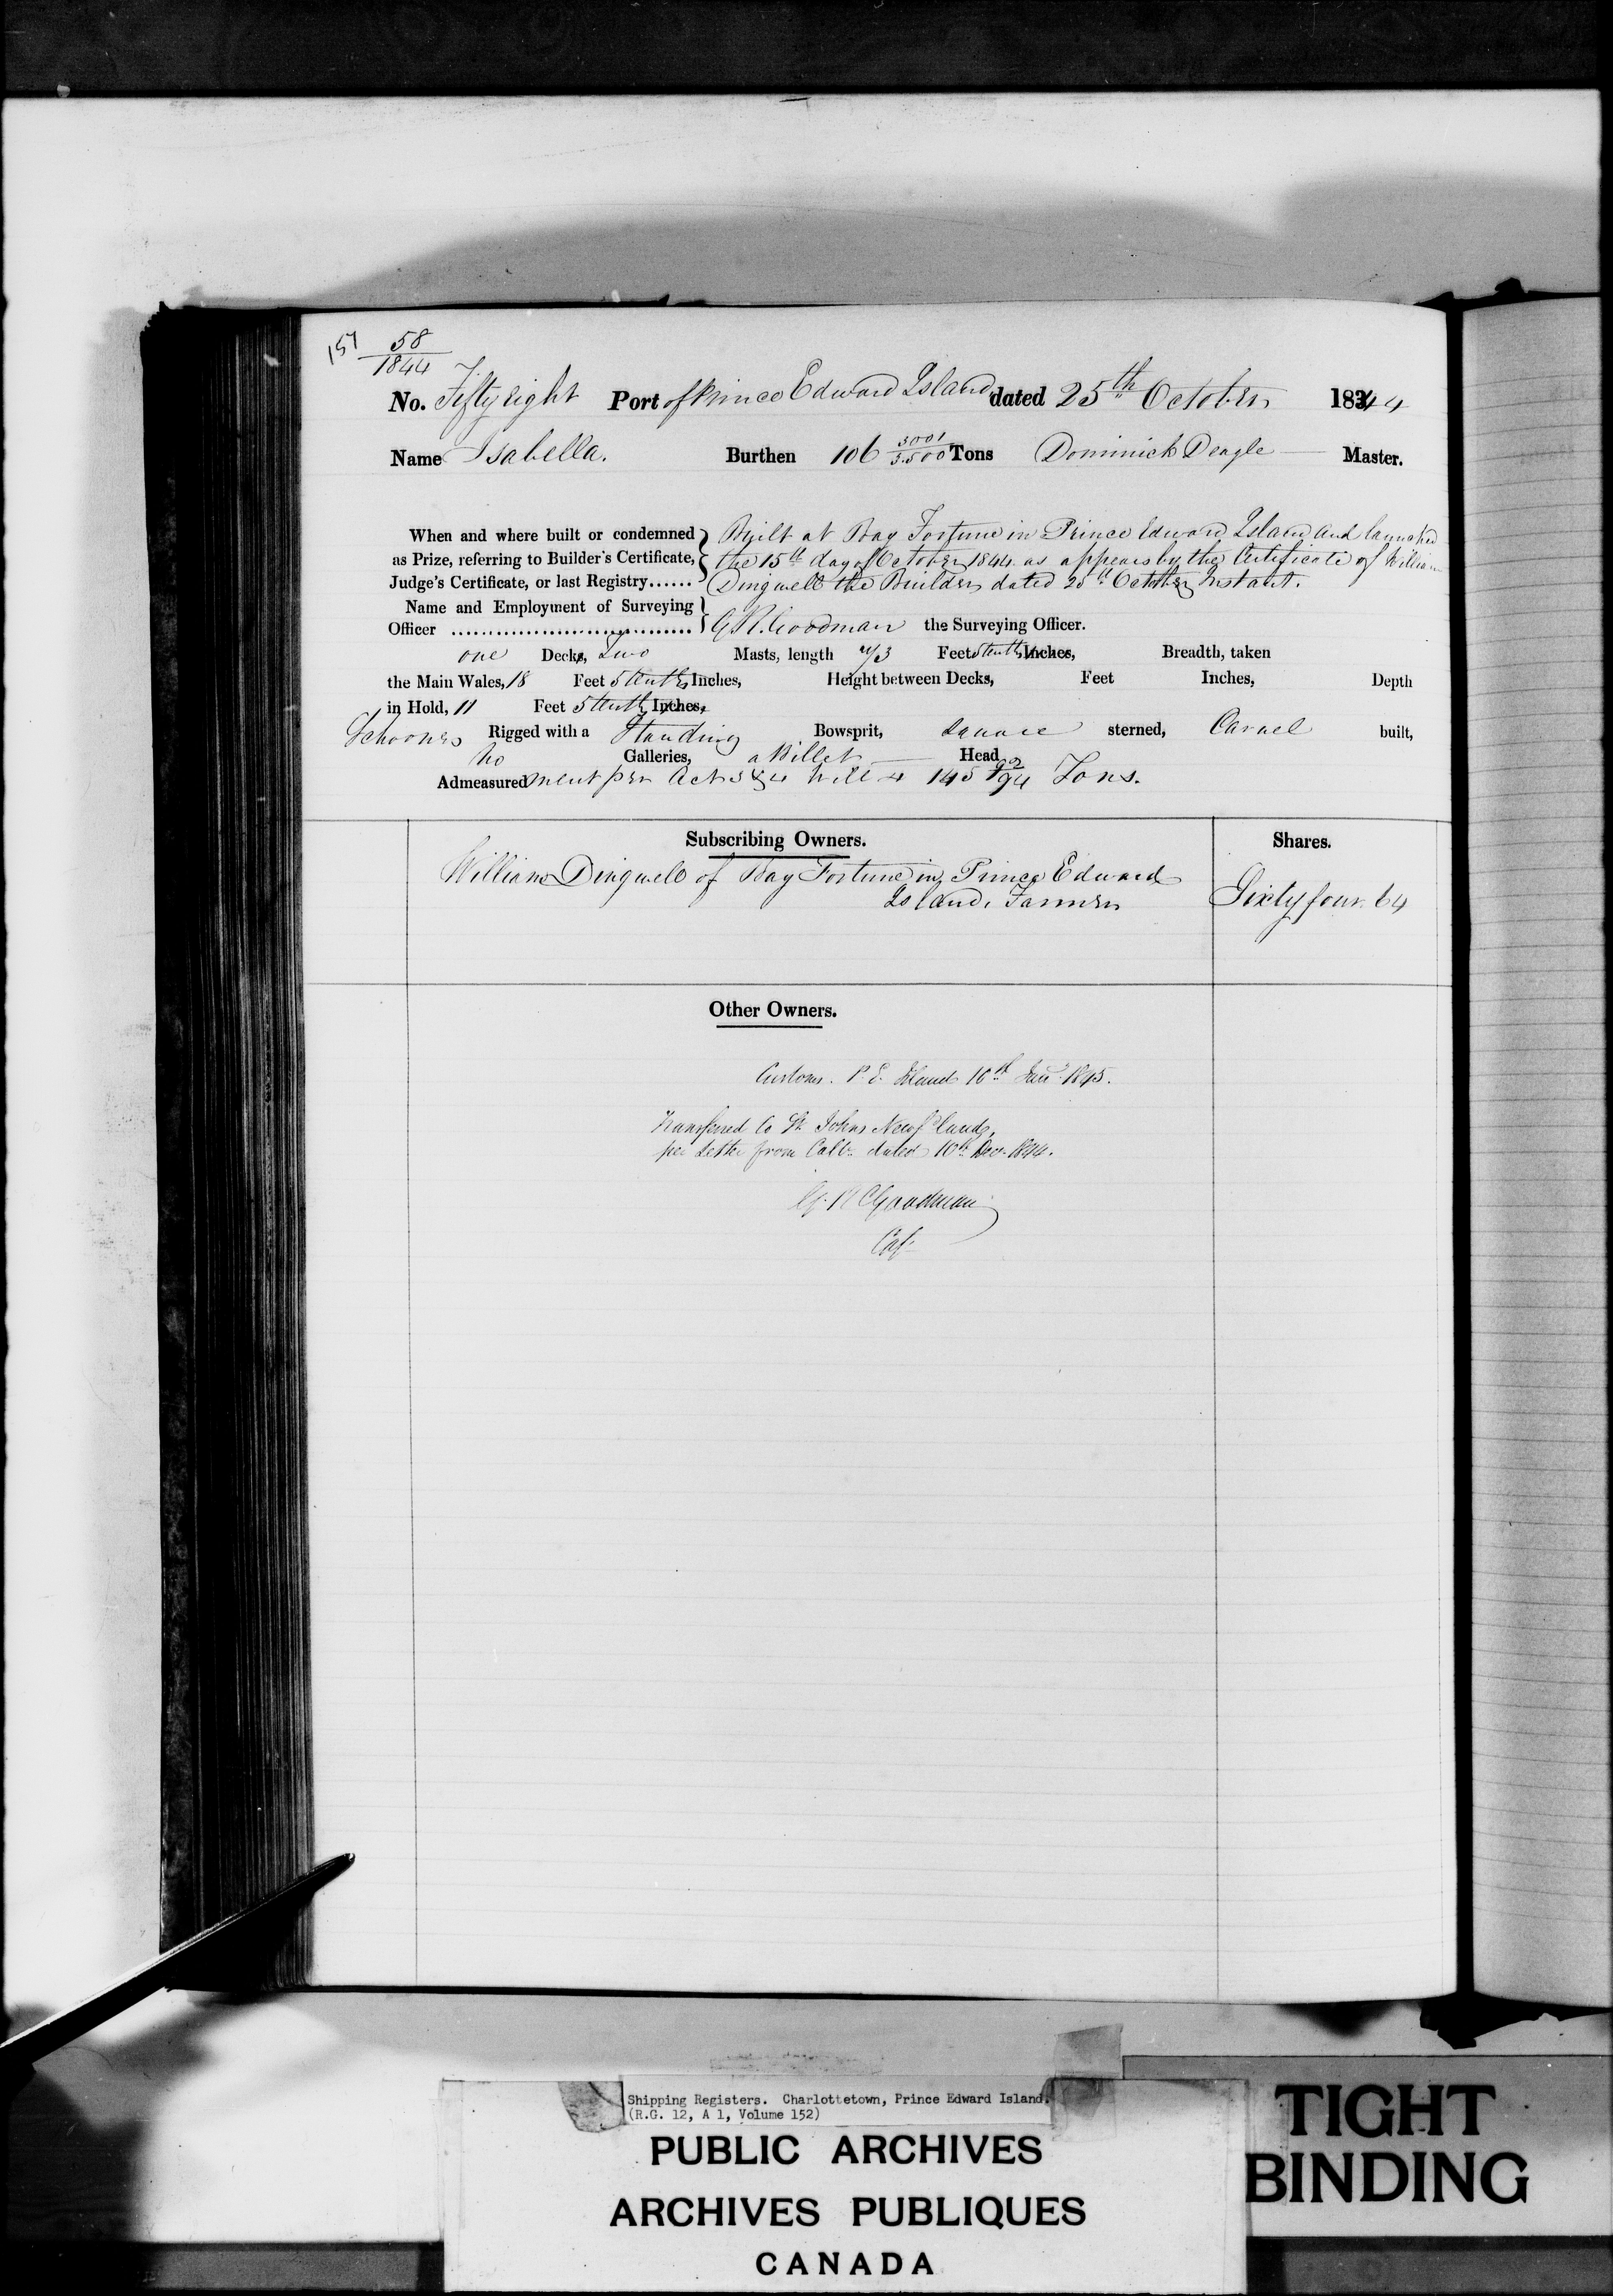 157 58
1844
No. Fifty eight Port of Prince Edward Island, dated 25th October 1844
Name Isabella. Burthen 106 3001/3500 Tons Dominick Deagle Master.
When and where built or condemned Built at Bay Fortune in Prince Edward Island and launched
as Prize, referring to Builder's Certificate, the 15th day of October 1844 as appears by the Certificate of William
Judge's Certificate, or last Registry...... Dingwell the Builder dated October Instant.
Name and Employment of Surveying
Officer ................................ G R Goodman the Surveying Officer.
one Decks, Two Masts, length Feet 5 tenths Inches, Breadth, taken
the Main Wales, 18 Feet 5 tenths Inches, Height between Decks, Feet Inches, Depth
in Hold, 11 Feet 5 tenths Inches,
Schooner Rigged with a Standing Bowsprit, Square sterned, Carvel built,
No Galleries, a Billet Head
Admeasurement per Act 3 & 4 Will 4 145 Tons.
Subscribing Owners. Shares.
William Dingwell of Bay Fortune in Prince Edward
Island, Farmer Sixty four 64
Other Owners.
Customs. P. E. Island 10th Jany 1845.
Transferred to St Johns Newfdland,
per Letter from Collr dated 10th Dec. 1844.
G. R Goodman
Shipping Registers. Charlottetown, Prince Edward Island.
(R.G. 12, A 1, Volume 152)
PUBLIC ARCHIVES
ARCHIVES PUBLIQUES
CANADA
TIGHT
BINDING